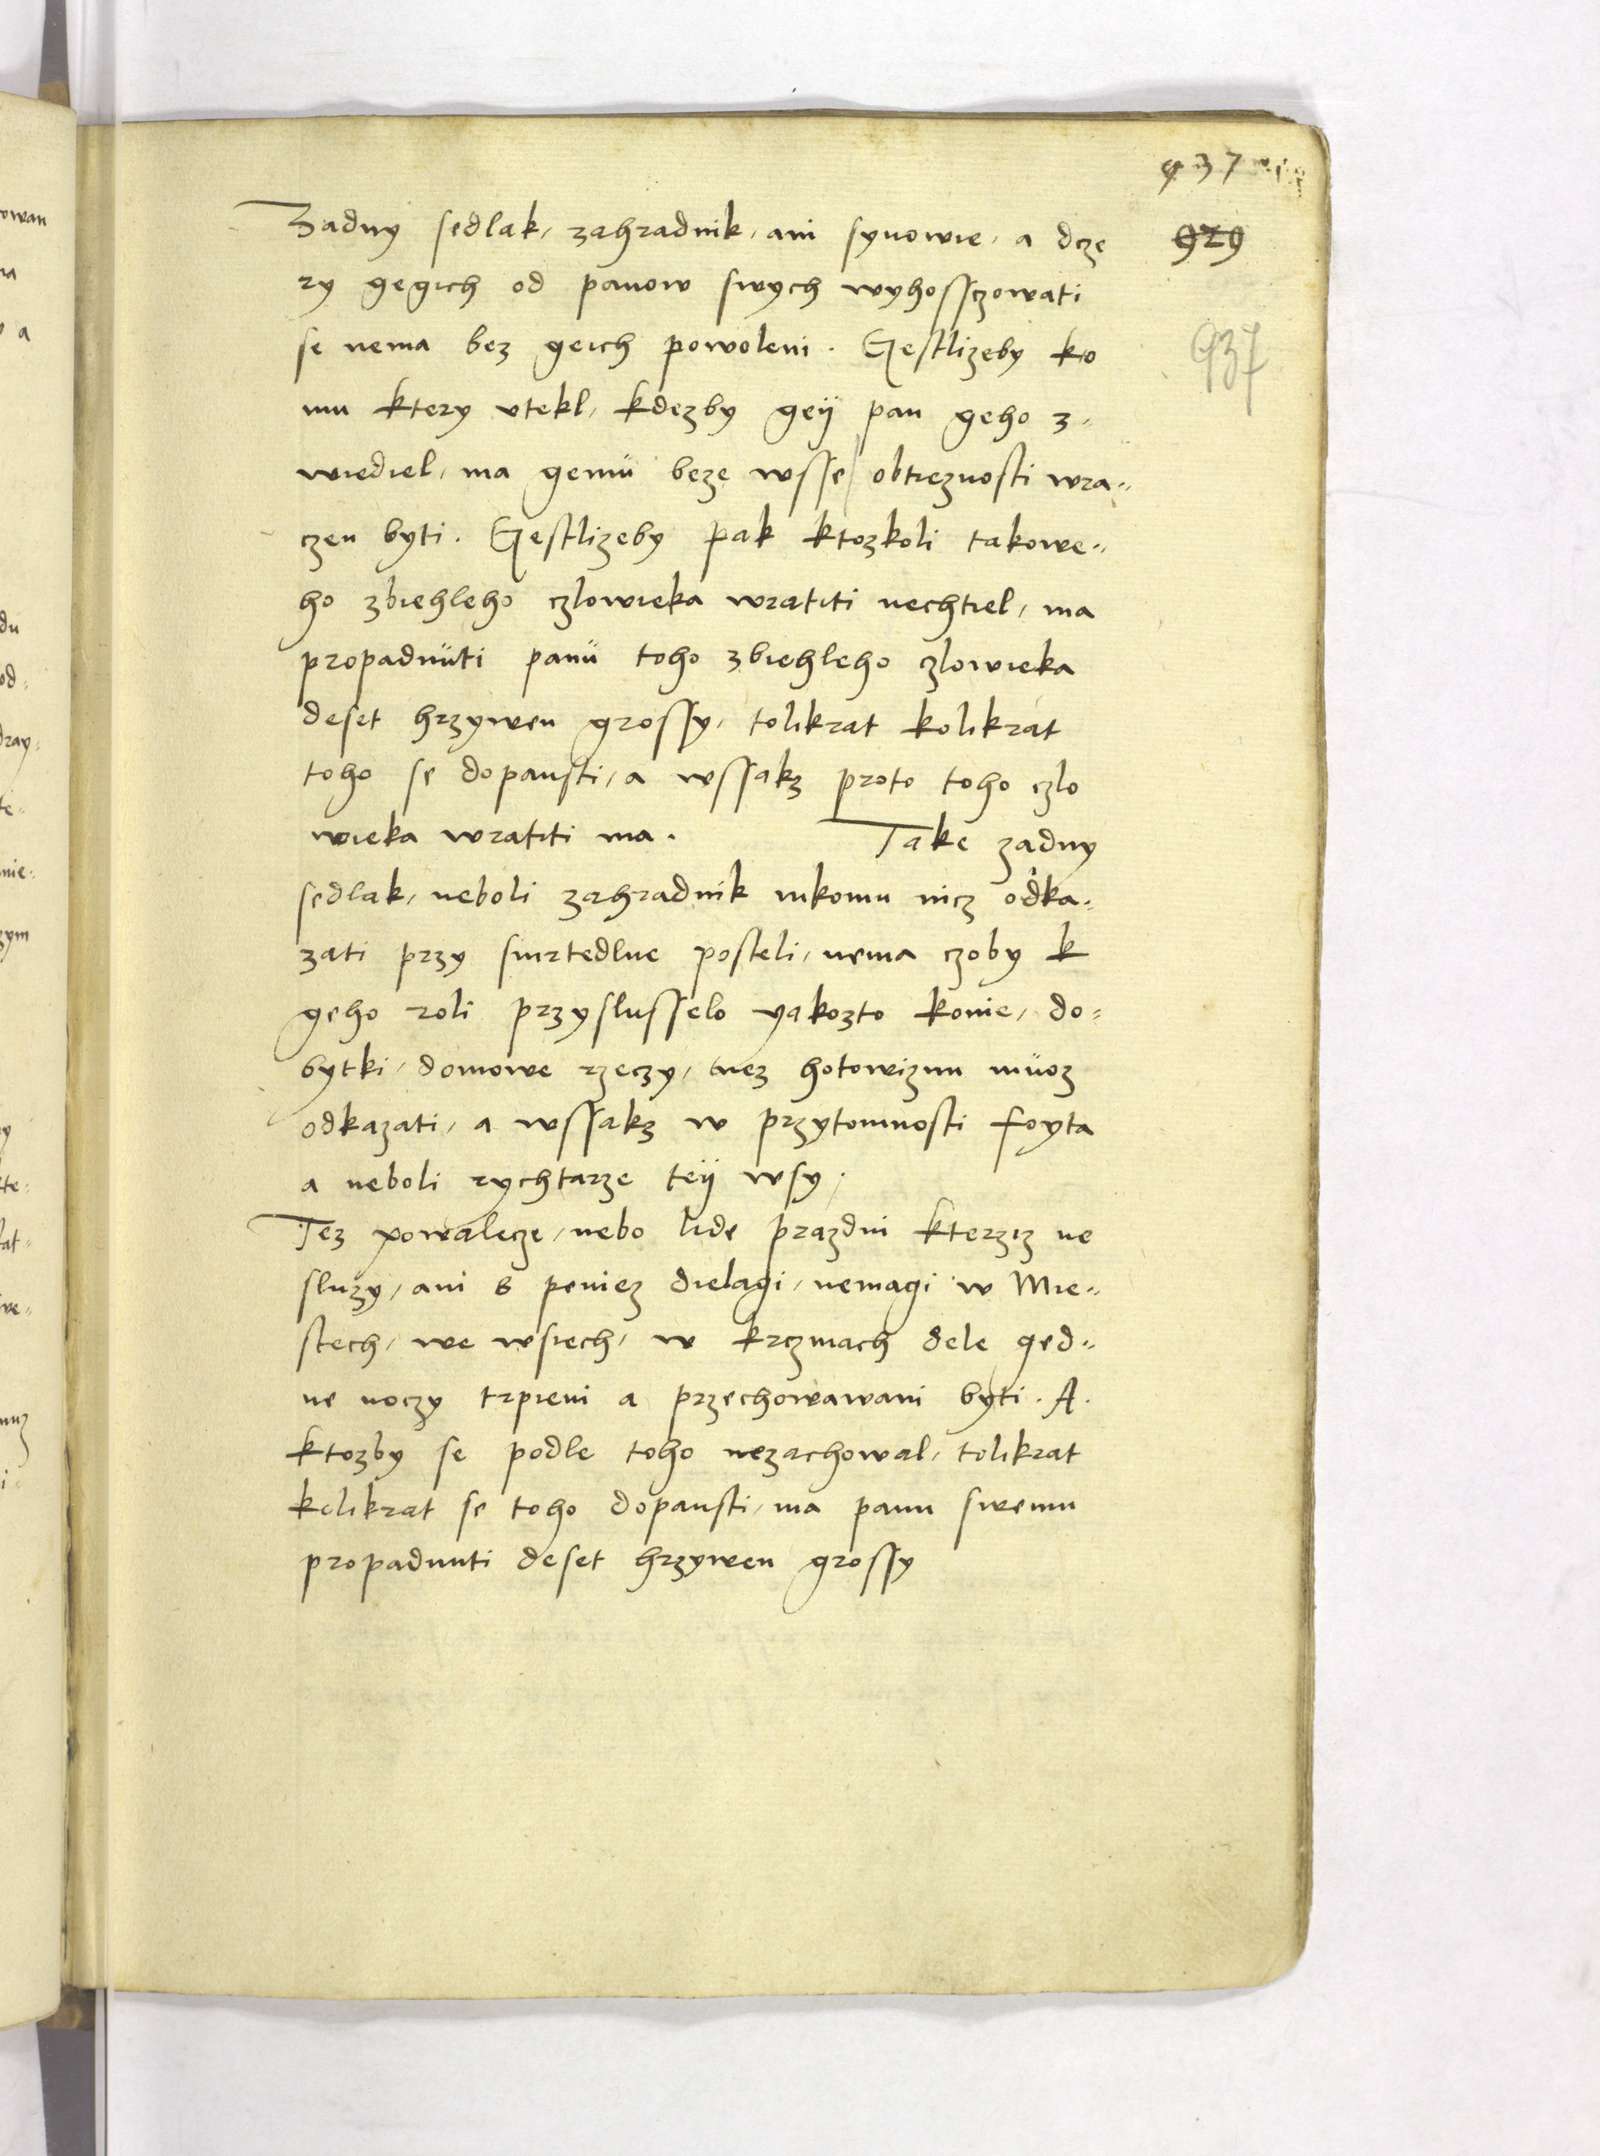 937
Zadny sedlak, zahradnik, ani synowie, a dcze
929
ry gegich od panow swych wyhosſczowati
se nema bez geich powoleni. Gestlizeby ko
937
mu ktery vtekl, kdezby geÿ pan geho z-
wiediel, ma gemu beze wsse obtieznosti wra-
czen byti. Gestlizeby pak ktozkoli takowe-
ho zbiehleho czlowieka wratiti nechtiel, ma
propadnüti panü toho zbiehleho czlowieka
deset hrzywen grossy, tolikrat kolikrat
toho se dopausti, a wssakz proto toho czlo
wieka wratiti ma. Take zadny
sedlak, neboli zahradnik nikomu nicz odka-
zati przy smrtedlne posteli, nema czoby k
geho roli przyslusselo yakozto konie, do-
bytki, domowe rzeczy, nez hotowiznu müoz
odkazati, a wssakz w przytomnosti foyta
a neboli rychtarze teÿ wsy.
Tez powalecze, nebo lide prazdni kterziz ne
sluzy, ani s peniez dielagi, nemagi w Mie-
stech, we wsiech, w krczmach dele ged-
ne noczy trpieni a przechowawani byti. A
ktozby se podle toho nezachowal, tolikrat
kolikrat se toho dopausti, ma panu swemu
propadnuti deset hrzywen grossy